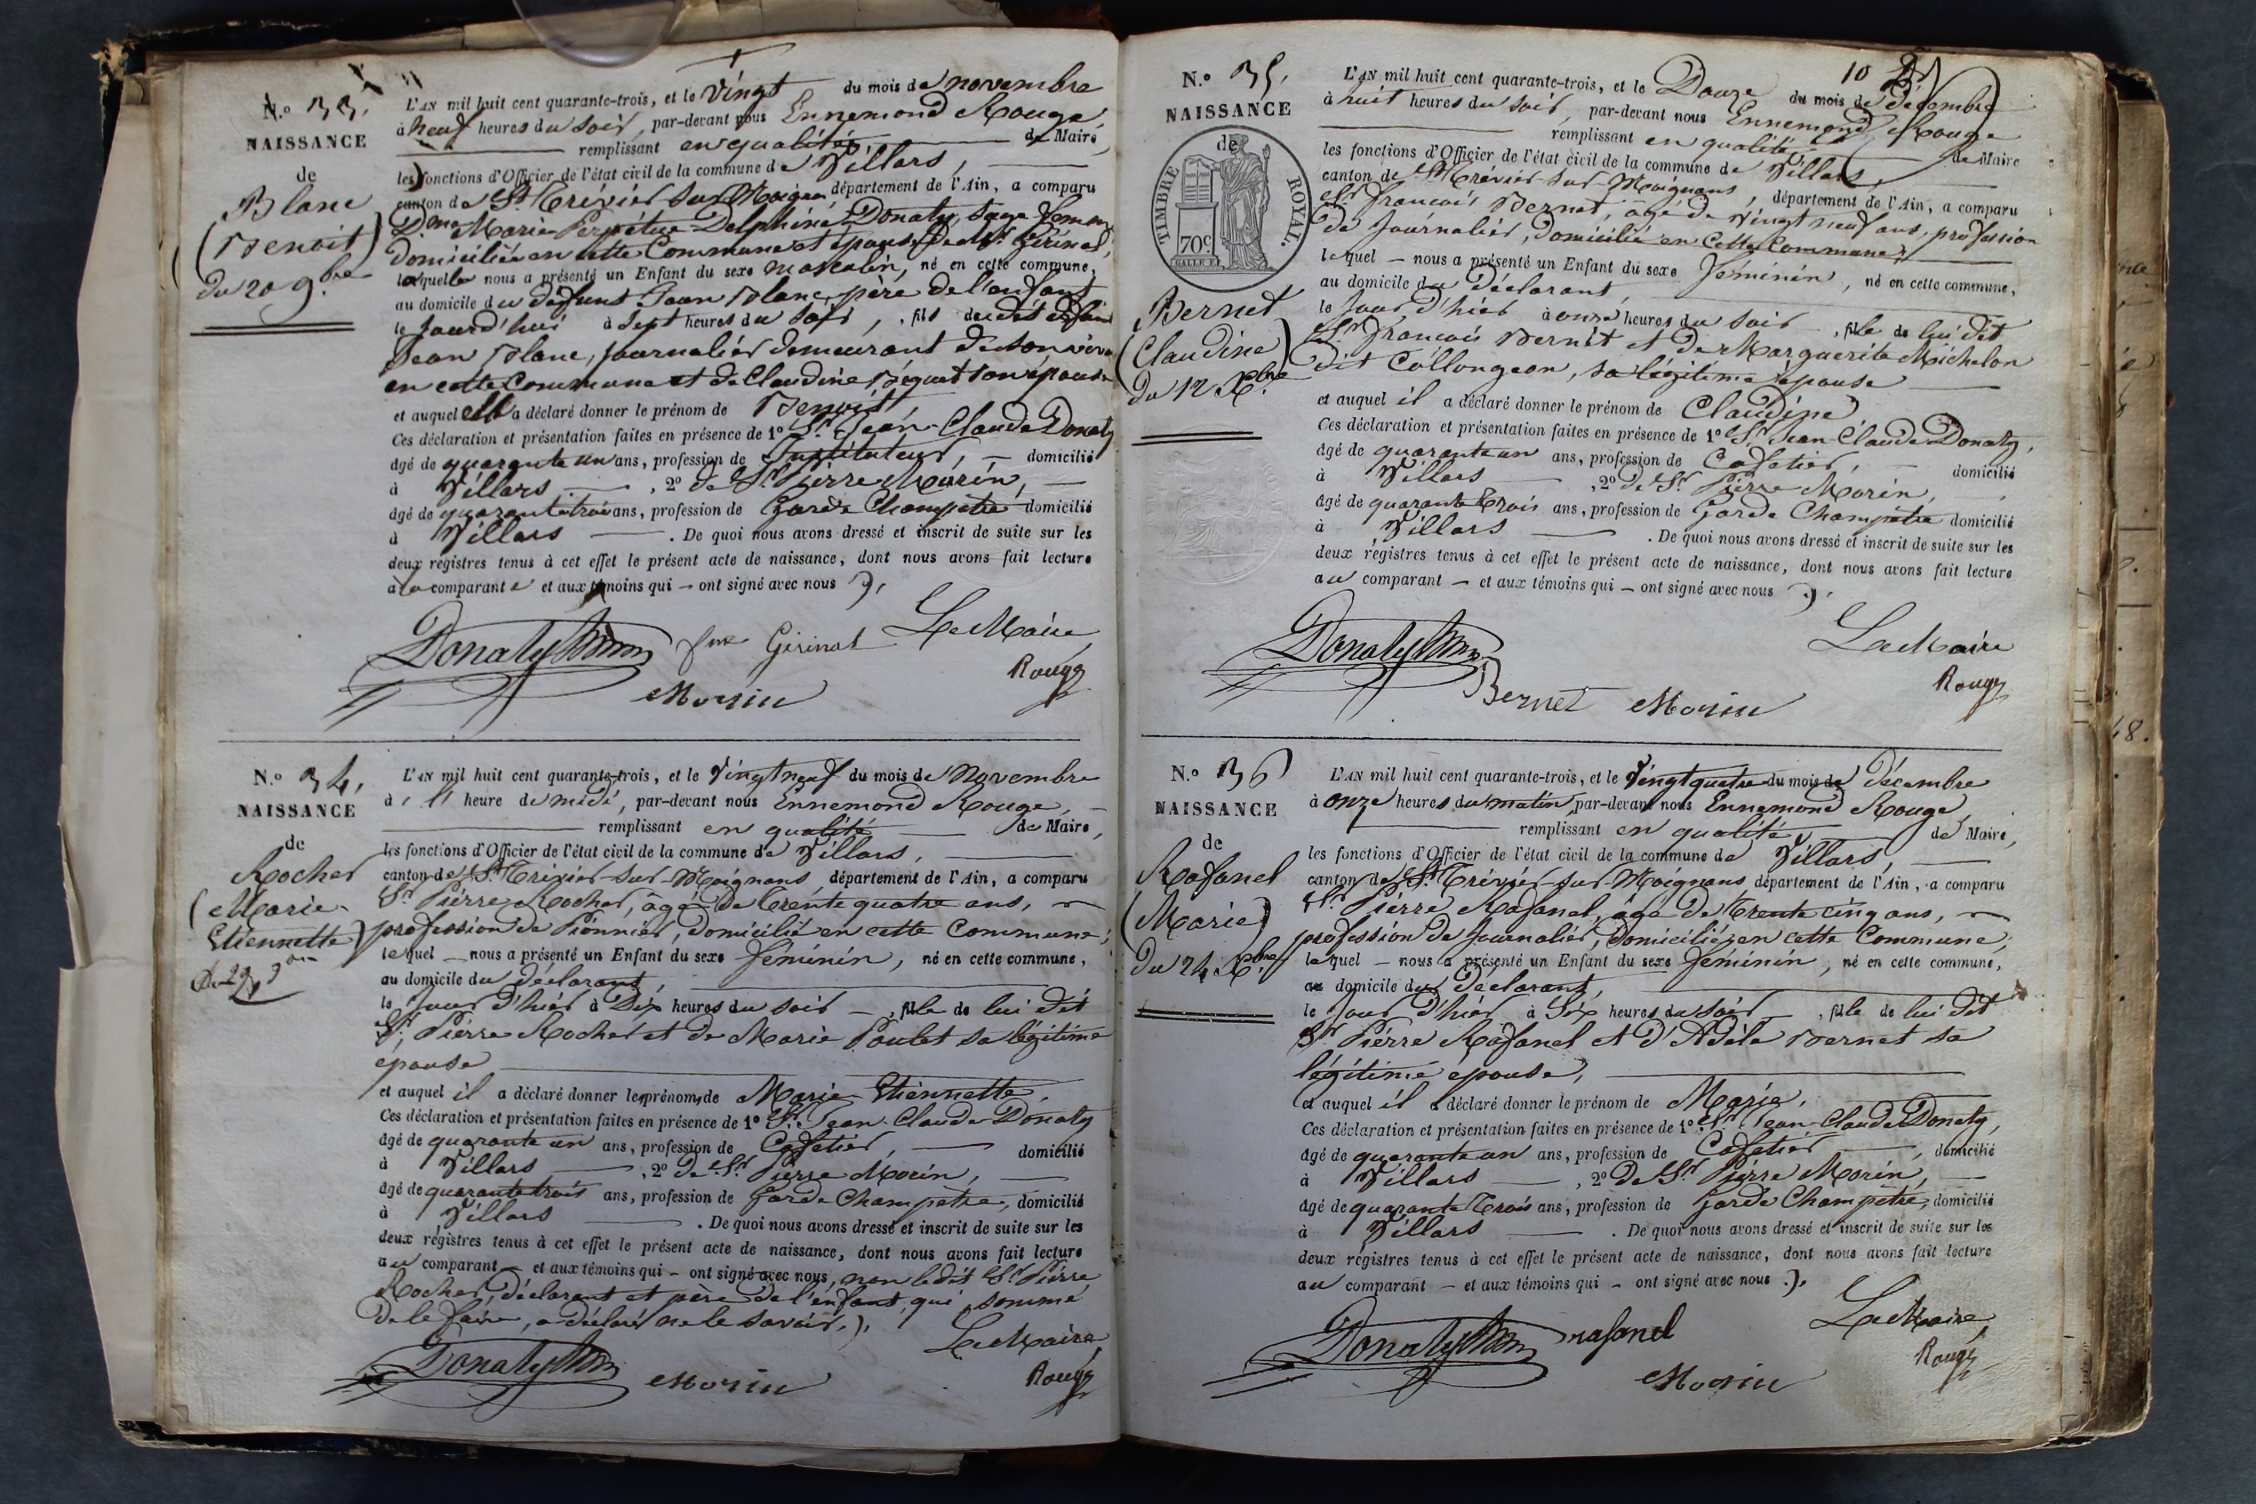 N.o 33.
NAISSANCE
de
Blanc
(Benoit)
du 20 9.bre
L'AN mil huit cent quarante-trois, et le Vingt du mois de novembre
à neuf heures du soir, par-devant nous Ennemond Rouge,
remplissant en qualité de Maire,
les fonctions d'Officier de l'état civil de la commune de Villars,
canton de St Trivier sur Moignan département de l'Ain, a comparu
D.me Marie Perpétue Delphine Donaty, sage femme,
domiciliée en cette Commune et épouse de Sr. Girinat,
laquelle nous a présenté un Enfant du sexe masculin, né en cette commune,
au domicile du défunt Jean Blanc, père de l'enfant
le jourd'hui à sept heures du soir, fils du dit défunt
Jean Blanc, journalier demeurant de son vivant
en cette Commune et de Claudine Béguet son épouse
et auquel elle a déclaré donner le prénom de Benoit,
Ces déclaration et présentation faites en présence de 1o Sr. Jean-Claude Donaty
âgé de quarante un ans, profession de Instituteur, — domicilié
à Villars — , 2o de Sr Pierre Morin, —
âgé de quarante trois ans, profession de Garde Champêtre domicilié
à Villars — . De quoi nous avons dressé et inscrit de suite sur les
deux régistres tenus à cet effet le présent acte de naissance, dont nous avons fait lecture
à la comparante et aux témoins qui — ont signé avec nous ).
Donaty fme Girinat Le Maire
Morin Rouge
N.o 34.
NAISSANCE
de
Rocher
(Marie-
Etiennette)
Du 29 9bre
L'AN mil huit cent quarante-trois, et le Vingt neuf du mois de Novembre
à 1 heure de midi, par-devant nous Ennemond Rouge, —
remplissant en qualité — de Maire,
les fonctions d'Officier de l'état civil de la commune de Villars,
canton de St Trivier-sur-Moignans département de l'Ain, a comparu
Sr. Pierre Rocher, âgé de trente quatre ans, —
profession de Pionnier, domicilié en cette Commune;
lequel — nous a présenté un Enfant du sexe féminin, né en cette commune,
au domicile du déclarant,
le jour d'hier à Dix heures du soir — , fille de lui dit
Sr. Pierre Rocher et de Marie Poulet sa légitime
épouse
et auquel il a déclaré donner les prénoms de Marie-Etiennette,
Ces déclaration et présentation faites en présence de 1o Sr. Jean-Claude Donaty
âgé de quarante un ans, profession de Cafetier, — domicilié
à Villars — , 2o de Sr Pierre Morin, —
âgé de quarante trois ans, profession de Garde Champetre, domicilié
à Villars — . De quoi nous avons dressé et inscrit de suite sur les
deux régistres tenus à cet effet le présent acte de naissance, dont nous avons fait lecture
au comparant — et aux témoins qui — ont signé avec nous, non le dit Sr Pierre
Rocher, déclarant et père de l'enfant, qui, sommé
de le faire, a déclaré ne le savoir. ).
Donaty Le Maire
Morin Rouge
10
N.o 35.
NAISSANCE
de
TIMBRE ROYAL.
70c
Bernet
(Claudine)
Du 12 Xbre.
L'AN mil huit cent quarante-trois, et le Douze du mois de décembre
à huit heures du soir, par-devant nous Ennemond Rouge
remplissant en qualité — de Maire
les fonctions d'Officier de l'état civil de la commune de Villars,
canton de St Trivier-sur-Moignans, département de l'Ain, a comparu
Sr. François Bernet, âgé de vingt neuf ans, profession
de Journalier, domicilié en cette Commune;
lequel — nous a présenté un Enfant du sexe féminin, né en cette commune,
au domicile du déclarant,
le jour d'hier à onze heures du soir , fille de lui dit
Sr. François Bernet et de Marguerite Michelon
dit Collongeon, sa légitime épouse
et auquel il a déclaré donner le prénom de Claudine,
Ces déclaration et présentation faites en présence de 1o Sr. Jean-Claude Donaty,
âgé de quarante un ans, profession de Cafetier, — domicilié
à Villars — , 2o de Sr. Pierre Morin,
âgé de quarante trois ans, profession de Garde Champêtre domicilié
à Villars — . De quoi nous avons dressé et inscrit de suite sur les
deux régistres tenus à cet effet le présent acte de naissance, dont nous avons fait lecture
au comparant — et aux témoins qui — ont signé avec nous ).
Donaty Le Maire
Bernet Morin Rouge
N.o 36
NAISSANCE
de
Rafanel
(Marie)
Du 24 Xbre
L'AN mil huit cent quarante-trois, et le Vingt quatre du mois de décembre
à onze heures du matin, par-devant nous Ennemond Rouge,
remplissant en qualité — de Maire,
les fonctions d'Officier de l'état civil de la commune de Villars,
canton de St Trivier-sur-Moignans, département de l'Ain, a comparu
Sr. Pierre Rafanel, âgé de trente cinq ans, —
profession de journalier, domicilié en cette Commune,
lequel — nous a présenté un Enfant du sexe féminin, né en cette commune,
au domicile du déclarant,
le jour d'hier à six heures du soir — , fille de lui dit
Sr Pierre Rafanel et d'Adèle Bernet sa
légitime épouse,
et auquel il a déclaré donner le prénom de Marie,
Ces déclaration et présentation faites en présence de 1o Sr. Jean-Claude Donaty,
âgé de quarante un ans, profession de Cafetier — , domicilié
à Villars — , 2o de Sr Pierre Morin, —
âgé de quarante trois ans, profession de Garde Champêtre, domicilié
à Villars — . De quoi nous avons dressé et inscrit de suite sur les
deux régistres tenus à cet effet le présent acte de naissance, dont nous avons fait lecture
au comparant — et aux témoins qui — ont signé avec nous ).
Donaty rafanel Le Maire,
Morin Rouge